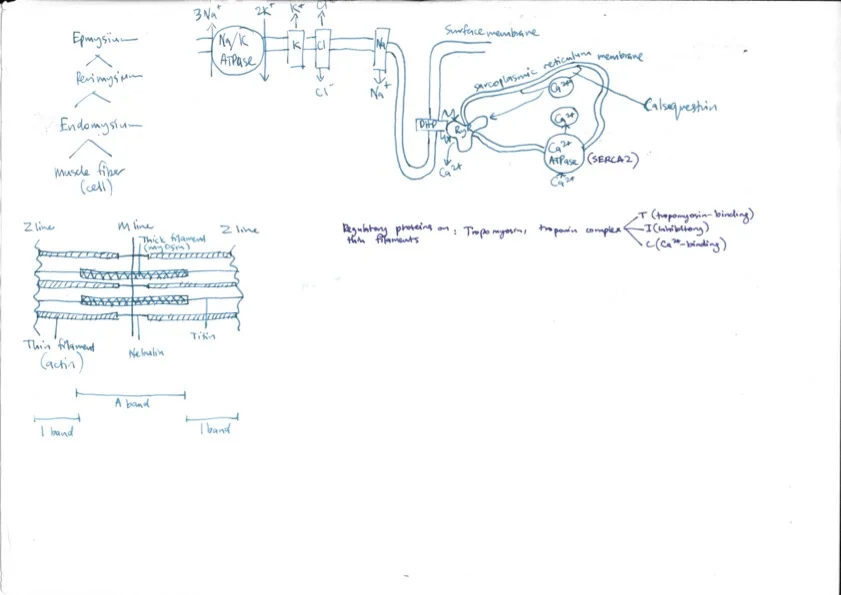 Epimysium
Perimysium
Endomysium
Muscle fiber
(cell)
3Na⁺
2K⁺
K⁺
Cl⁻
Na/K
ATPase
K
Cl
Na
Cl⁻
Na⁺
Surface membrane
sarcoplasmic reticulum membrane
Ca²⁺
Calsequestrin
Ca²⁺
DHP
Ry
Ca²⁺
Ca²⁺
ATPase
(SERCA2)
Ca²⁺
Z line
M line
Z line
Thick filament
(myosin)
Thin filament
(actin)
Nebulin
Titin
A band
I band
I band
Regulatory proteins on : Tropomyosin, troponin complex
thin filaments
T (tropomyosin-binding)
I (Inhibitory)
C (Ca²⁺-binding)